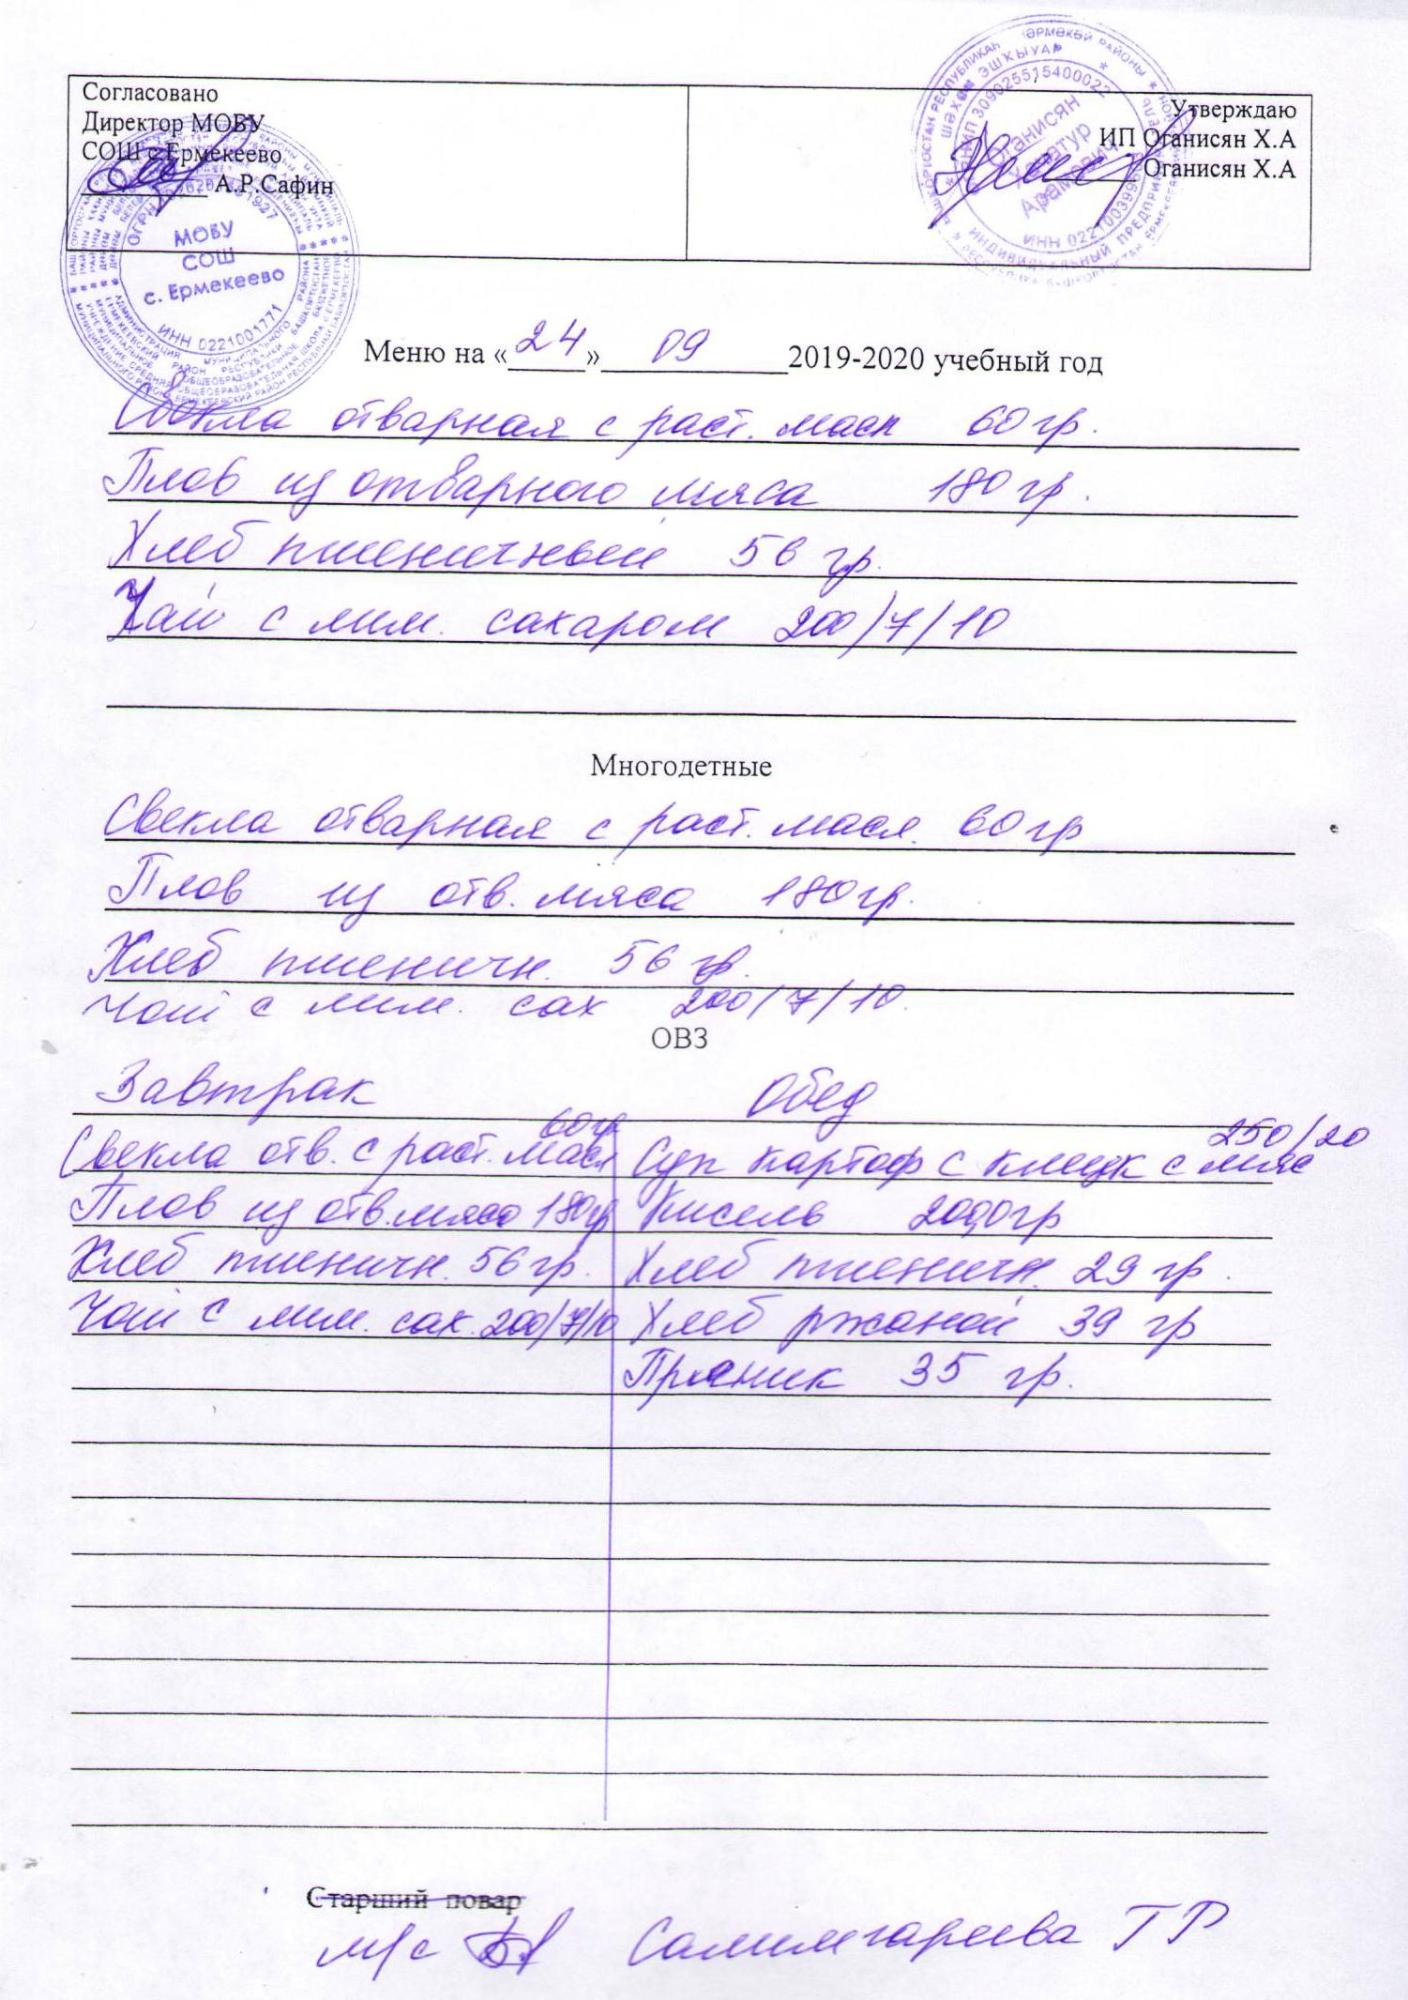 Согласовано
Директор МОБУ
СОШ с.Ермекеево
А.Р.Сафин
Утверждаю
ИП Оганисян Х.А
Оганисян Х.А
МОБУ
СОШ
с. Ермекеево
ИНН 0221001771
Оганисян
Хачатур
Арамович
Меню на «24» 09 2019-2020 учебный год
Свекла отварная с раст. масл 60 гр.
Плов из отварного мяса 180 гр.
Хлеб пшеничный 56 гр.
Чай с лим. сахаром 200/7/10
Многодетные
Свекла отварная с раст. масл. 60 гр
Плов из отв. мяса 180 гр.
Хлеб пшеничн. 56 гр.
Чай с лим. сах 200/7/10.
ОВЗ
Завтрак Обед
Свекла отв. с раст. масл 60 гр Суп картоф с клецк с мяс 250/20
Плов из отв. мяса 180 гр Кисель 200 гр
Хлеб пшеничн. 56 гр. Хлеб пшеничн. 29 гр.
Чай с лим. сах. 200/7/10 Хлеб ржаной 39 гр
Пряник 35 гр.
Старший повар
м/с Салимгареева ГР